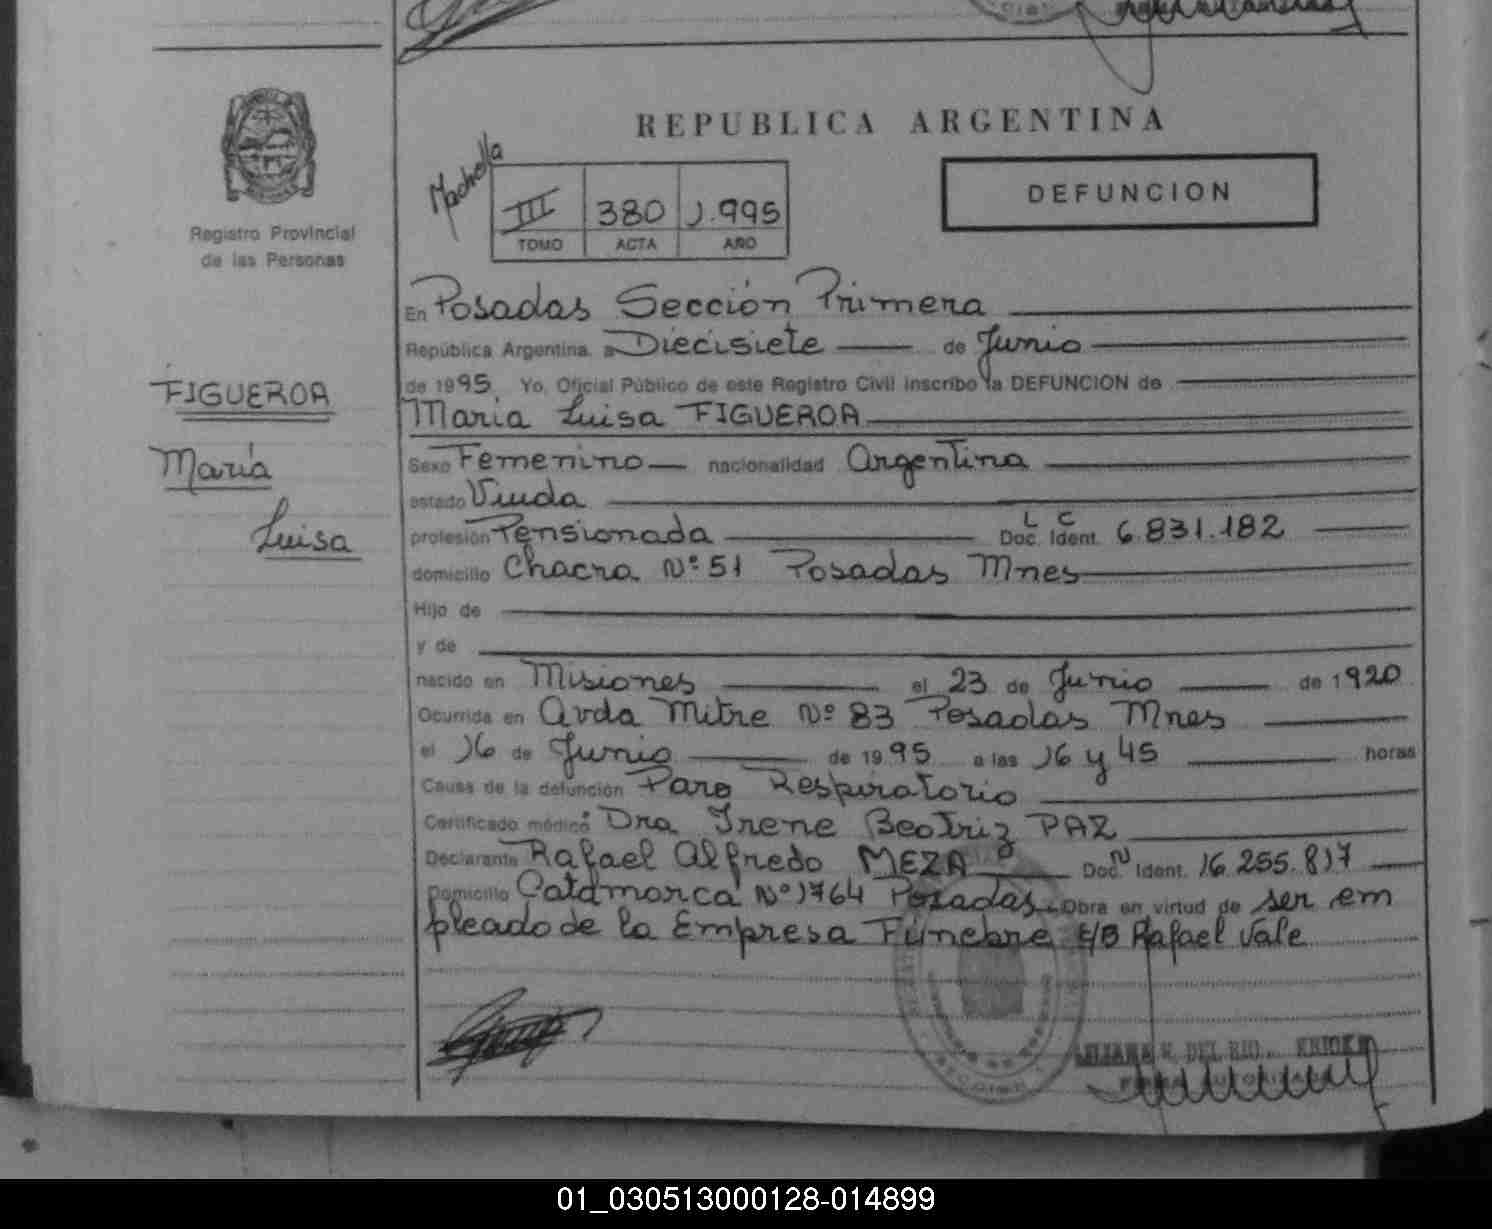 REPUBLICA ARGENTINA
DEFUNCION
III 380 1.995
TOMO ACTA AÑO
Registro Provincial
de las Personas
FIGUEROA
María
Luisa
En Posadas Sección Primera
República Argentina, a Diecisiete de Junio
de 1995, Yo, Oficial Público de este Registro Civil inscribo la DEFUNCION de
María Luisa FIGUEROA
Sexo Femenino nacionalidad Argentina
estado Viuda
L C
profesión Pensionada Doc. Ident. 6.831.182
domicilio Chacra Nº 51 Posadas Mnes
Hijo de
y de
nacido en Misiones el 23 de Junio de 1920
Ocurrida en Avda Mitre Nº 83 Posadas Mnes
el 16 de Junio de 1995 a las 16 y 45 horas
Causa de la defunción Paro Respiratorio
Certificado médico Dra Irene Beatriz PAZ
Declarante Rafael Alfredo MEZA Doc. N Ident. 16.255.817
Domicilio Catamarca Nº 1764 Posadas Obra en virtud de ser em
pleado de la Empresa Fúnebre E/B Rafael Vale
DEL RIO
01_030513000128-014899